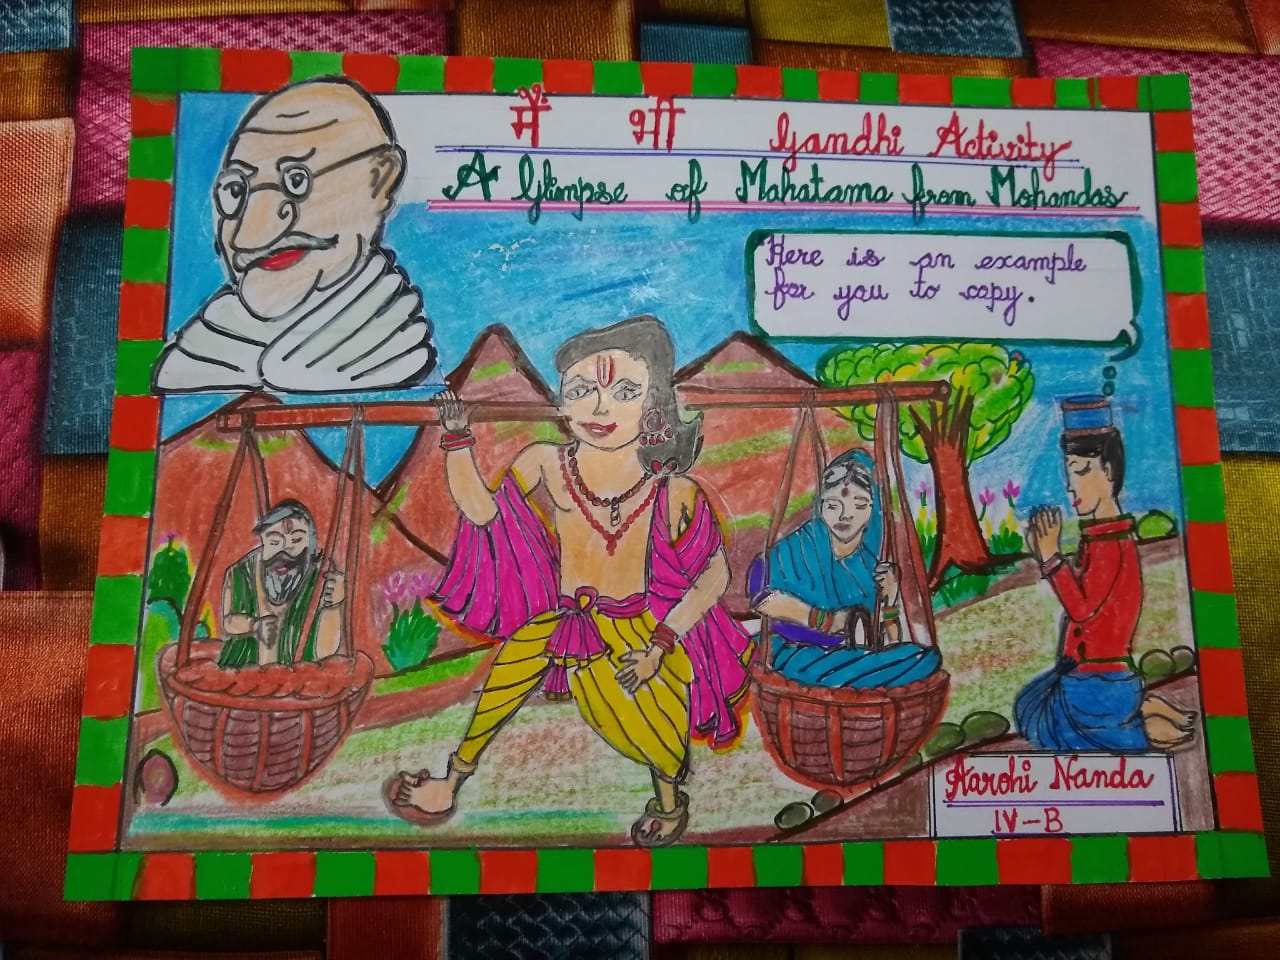 मैं भी Gandhi Activity
A Glimpse of Mahatama from Mohandas
Here is an example
for you to copy.
Aarohi Nanda
IV-B